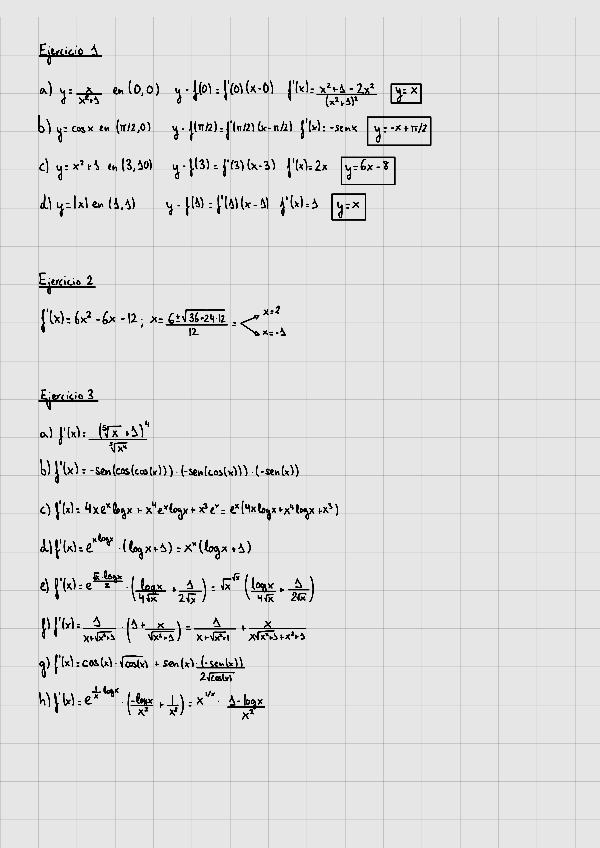 Ejercicio 1
a) y = x/(x²+1) en (0,0) y - f(0) = f'(0)(x-0) f'(x) = (x²+1-2x²)/(x²+1)² y = x
b) y = cos x en (π/2,0) y - f(π/2) = f'(π/2)(x-π/2) f'(x) = -sen x y = -x+π/2
c) y = x²+1 en (3,10) y - f(3) = f'(3)(x-3) f'(x) = 2x y = 6x-8
d) y = |x| en (1,1) y - f(1) = f'(1)(x-1) f'(x) = 1 y = x
Ejercicio 2
f'(x) = 6x² - 6x - 12; x = (6±√(36+24·12))/12 = x=2 x=-1
Ejercicio 3
a) f'(x) = (⁵√x + 1)⁴/⁵√x⁴
b) f'(x) = -sen(cos(cos(x)))·(-sen(cos(x)))·(-sen(x))
c) f'(x) = 4xeˣlogx + x⁴eˣlogx + x³eˣ = eˣ(4xlogx+x⁴logx+x³)
d) f'(x) = e^(xlogx)·(logx+1) = xˣ(logx+1)
e) f'(x) = e^((√x·logx)/2)·(logx/(4√x) + 1/(2√x)) = √x^√x (logx/(4√x) + 1/(2√x))
f) f'(x) = 1/(x+√(x²+1))·(1 + x/√(x²+1)) = 1/(x+√(x²+1)) + x/(x√(x²+1)+x²+1)
g) f'(x) = cos(x)·√cos(x) + sen(x)·(-sen(x))/(2√cos(x))
h) f'(x) = e^(1/x·logx)·(-logx/x² + 1/x²) = x^(1/x)·(1-logx)/x²